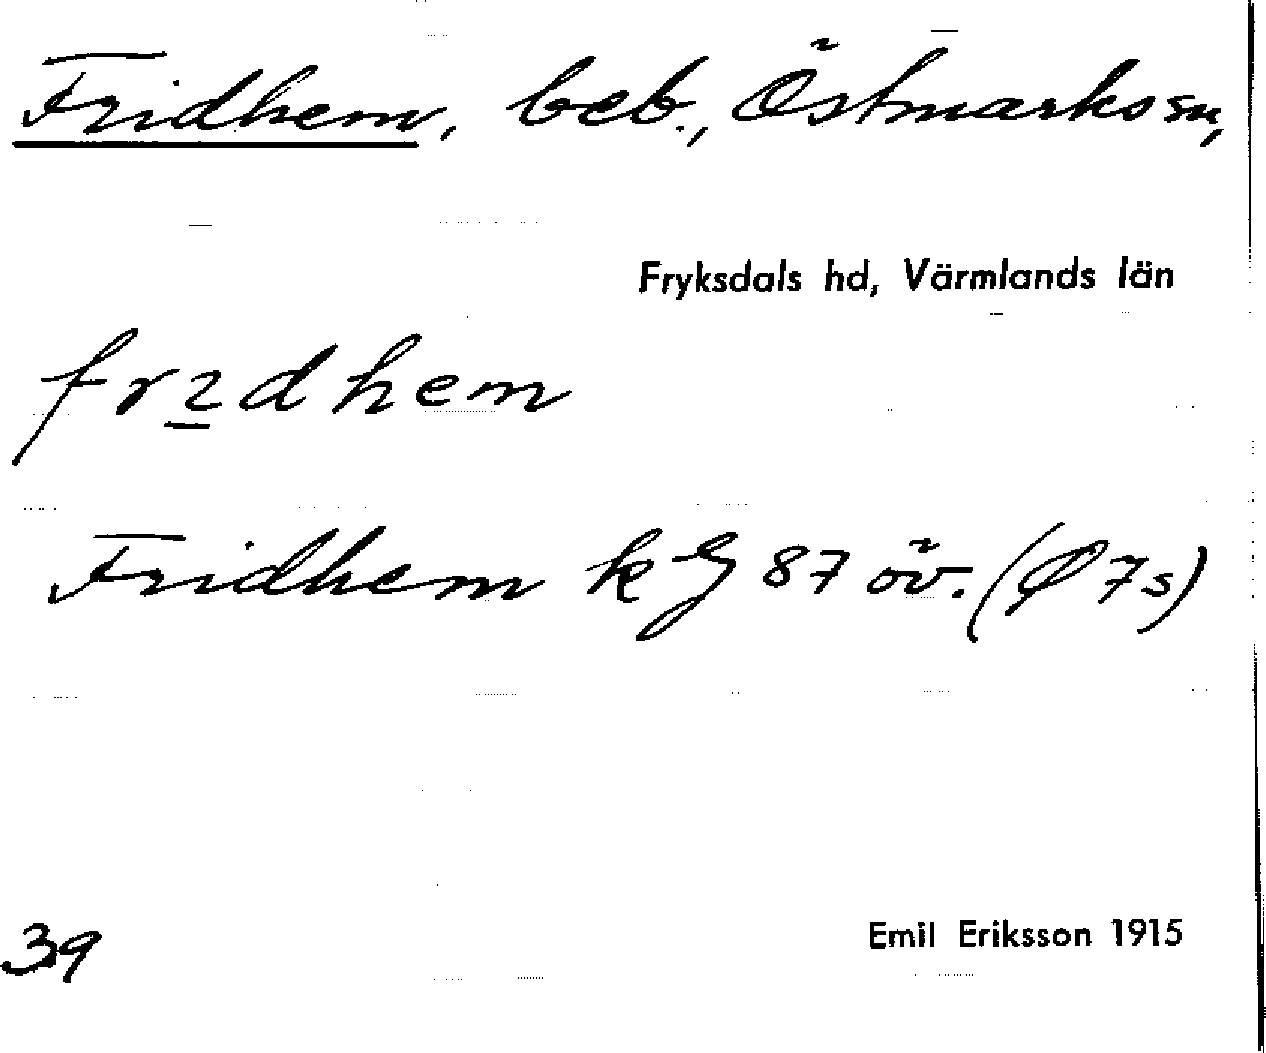 Fridhem, beb., Östmarks sn,
Fryksdals hd, Värmlands län
frıdhem
Fridhem k 87 öv. (Ø 7s)
39
Emil Eriksson 1915